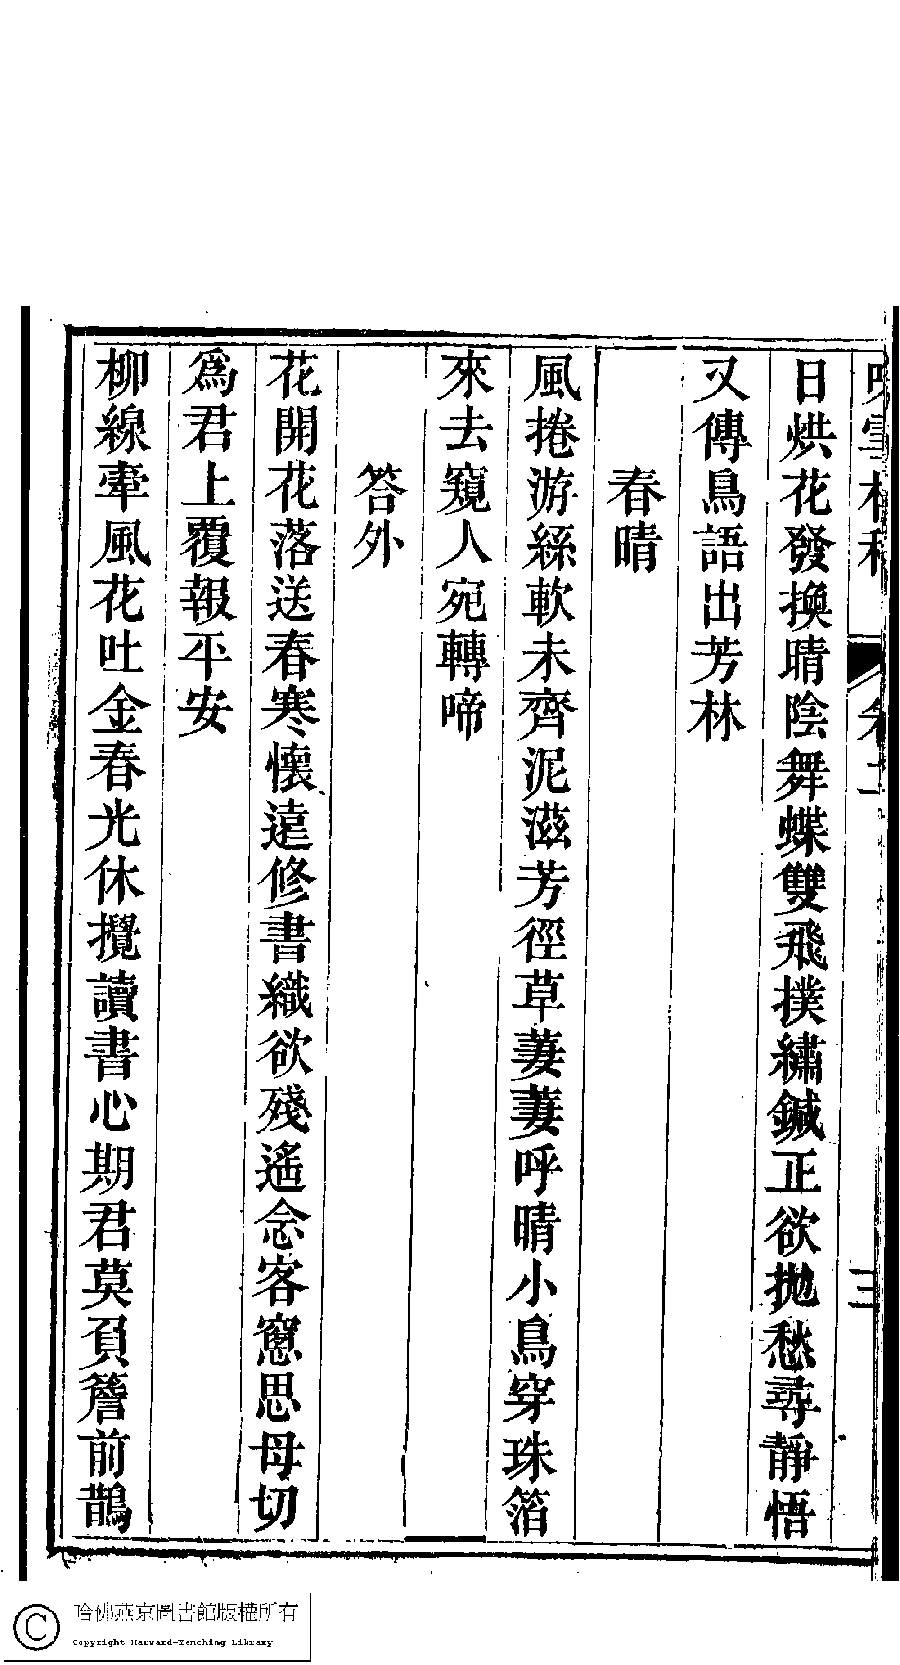 日烘花發換晴陰舞蝶雙飛撲繡鍼正欲拋愁尋靜悟
又傳鳥語出芳林
春晴
風捲游絲軟未齊泥滋芳徑草萋萋呼晴小鳥穿珠箔
來去窺人宛轉啼
答外
花開花落送春寒懷遠修書織欲殘遙念客窻思母切
爲君上覆報平安
柳線牽風花吐金春光休攪讀書心期君莫負簷前鵲
三
哈佛燕京圖書館版權所有
Copyright Harvard-Yenching Library